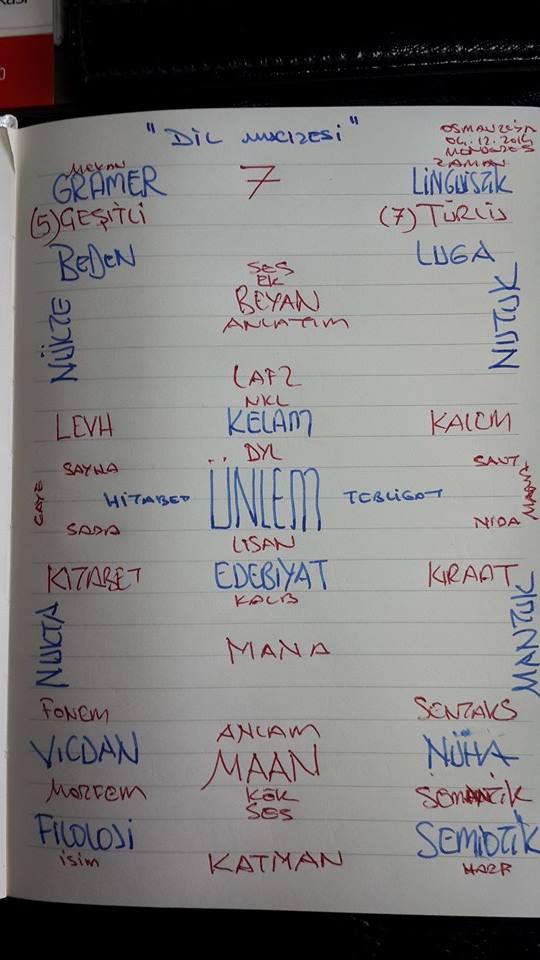 "DİL MUCİZESİ"
OSMANZİYA
04.12.2014
MENDERES
MEKAN ZAMAN
GRAMER 7 LİNGUİSTİK
(5) ÇEŞİTLİ (7) TÜRLÜ
BEDEN LUGA
SES
EK
BEYAN
ANLATIM
NÜKTE NUTUK
LAFZ
NKL
LEVH KELAM KALEM
DYL
SAYHA SAVT
GAYE HİTABET ÜNLEM TEBLİGAT MANA
SADA NIDA
LISAN
KITABET EDEBİYAT KIRAAT
KALB
NUKTA MANTUK
MANA
FONEM SENTAKS
ANLAM
VİCDAN MAAN NÜHA
MORFEM KÖK SEMANTİK
SES
FİLOLOJİ SEMİOTİK
İSİM KATMAN HARF